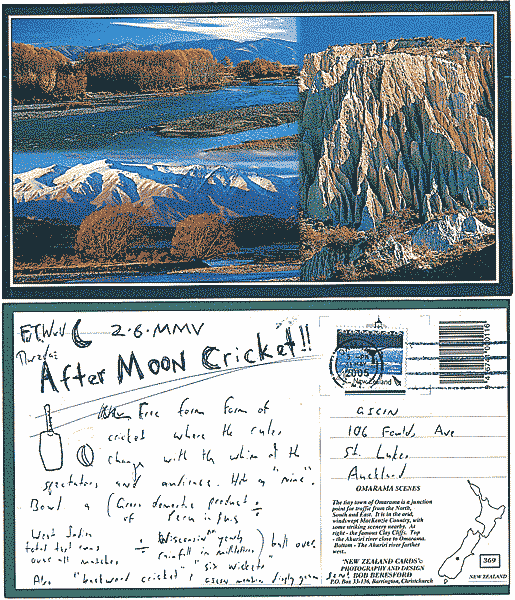 2·6·MMV
AFTER MOON CRICKET!!
Free form form of
cricket where the rules
change with the whim of the
spectators and audience.
Bowl a (Gross domestic product ÷
of
West Indies ÷ Wisconsin yearly ) ball over
total test runs rainfall in millilitres
over all matches "six wickets"
Also "backward cricket"
2005
New Zealand
GSCIN
106 Foulds Ave
St. Lukes
Auckland
OMARAMA SCENES
The tiny town of Omarama is a junction
point for traffic from the North,
South and East. It is in the arid,
windswept MacKenzie Country, with
some striking scenery nearby. At
right - the famous Clay Cliffs. Top
- the Ahuriri river close to Omarama.
Bottom - The Ahuriri river further
west..
'NEW ZEALAND CARDS'©
PHOTOGRAPHY AND DESIGN
BOB BERESFORD
P.O. Box 33-136, Barrington, Christchurch
369
NEW ZEALAND